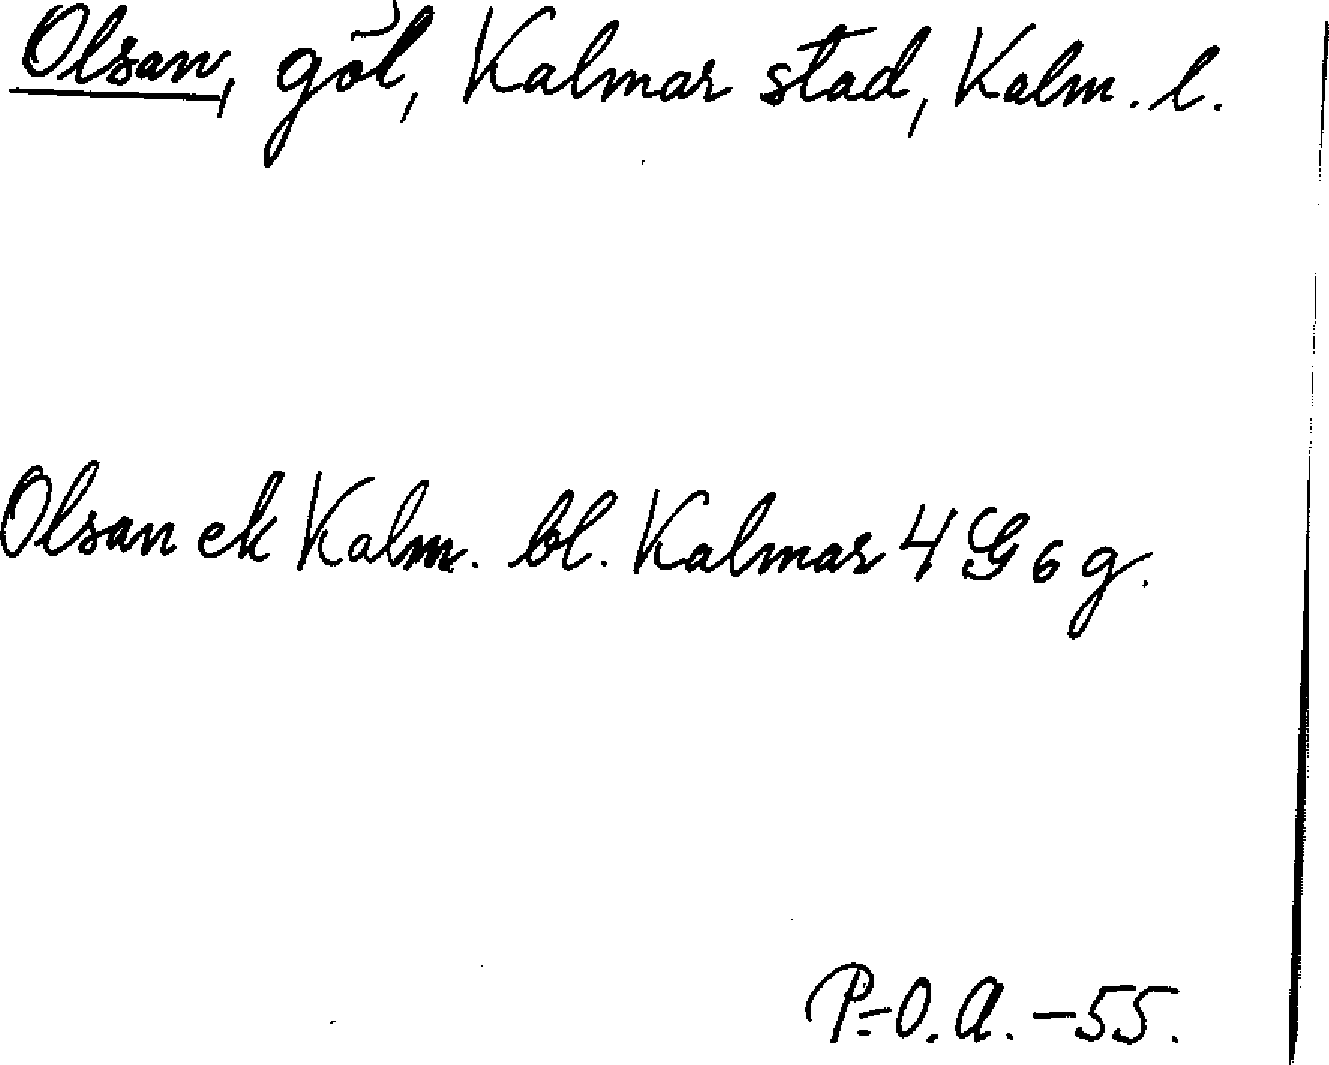 Olsan, göl, Kalmar stad, Kalm. l.
Olsan ek Kalm. bl. Kalmar 4 G 6 g.
P-O. A. -55.